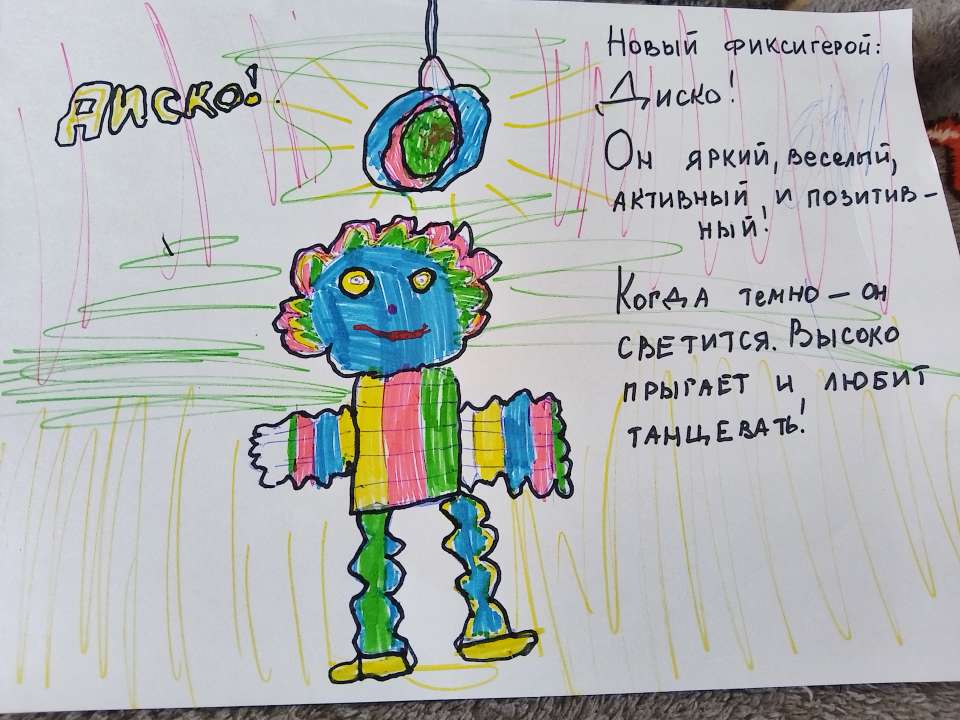 Диско!
Новый фиксигерой:
Диско!
Он яркий, веселый,
активный и позитив-
ный!
Когда темно - он
светится. Высоко
прыгает и любит
танцевать!